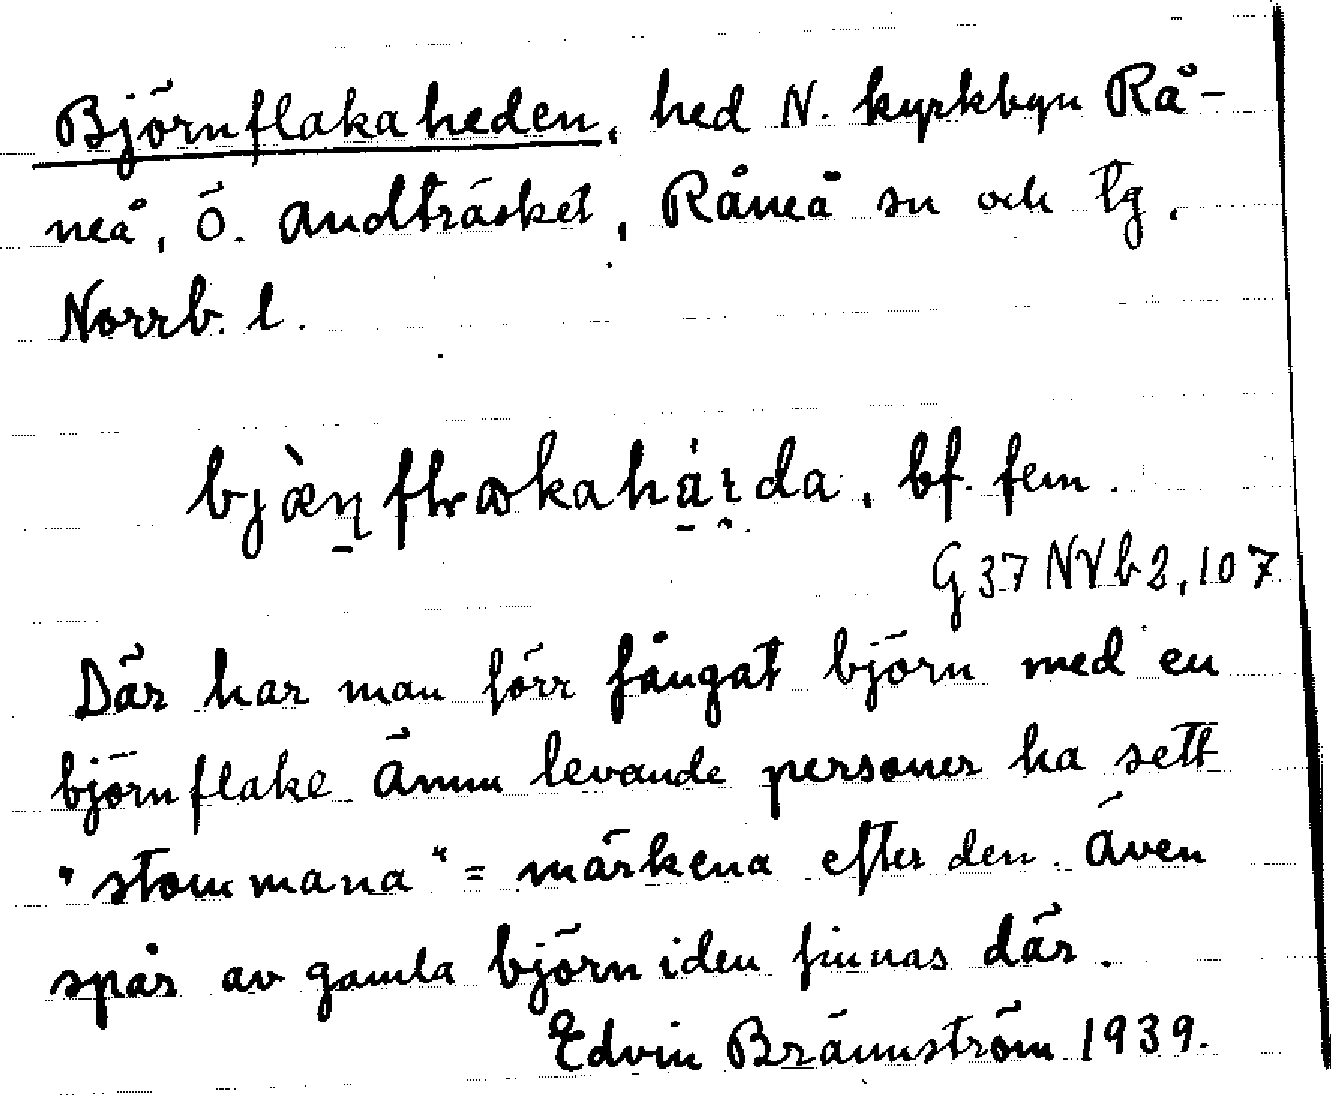 Björnflakaheden, hed N. kyrkbyn Rå-
neå, Ö. Andträsket, Råneå sn och tg,
Norrb. l.
bf. fem.
G 37 NVb2, 107
Där har man förr fångat björn med en
björnflake. Ännu levande personer ha sett
"stommana" = märkena efter den. Även
spår av gamla björniden finnas där.
Edvin Brännström 1939.